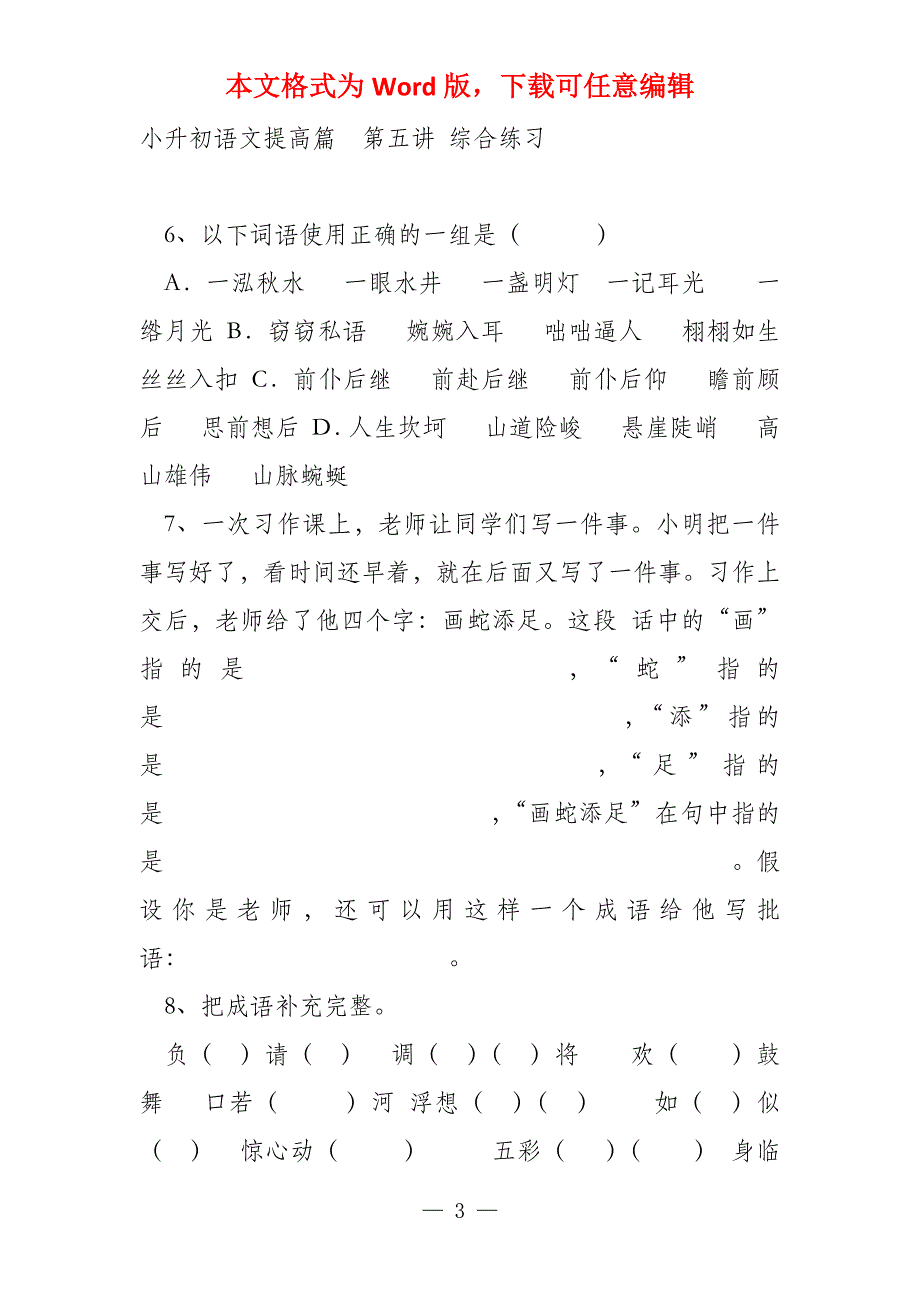 本文格式为 Word 版，下载可任意编辑
小升初语文提高篇 第五讲 综合练习
6、以下词语使用正确的一组是（ ）
A．一泓秋水 一眼水井 一盏明灯 一记耳光 一
绺月光 B．窃窃私语 婉婉入耳 咄咄逼人 栩栩如生
丝丝入扣 C．前仆后继 前赴后继 前仆后仰 瞻前顾
后 思前想后 D．人生坎坷 山道险峻 悬崖陡峭 高
山雄伟 山脉蜿蜒
7、一次习作课上，老师让同学们写一件事。小明把一件
事写好了，看时间还早着，就在后面又写了一件事。习作上
交后，老师给了他四个字：画蛇添足。这段 话中的“画”
指的是 ，“蛇”指的
是 ，“添”指的
是 ，“足”指的
是 ，“画蛇添足”在句中指的
是 。假
设你是老师，还可以用这样一个成语给他写批
语： 。
8、把成语补充完整。
负（ ）请（ ） 调（ ）（ ）将 欢（ ）鼓
舞 口若（ ）河 浮想（ ）（ ） 如（ ）似
（ ） 惊心动（ ） 五彩（ ）（ ） 身临
— 3 —